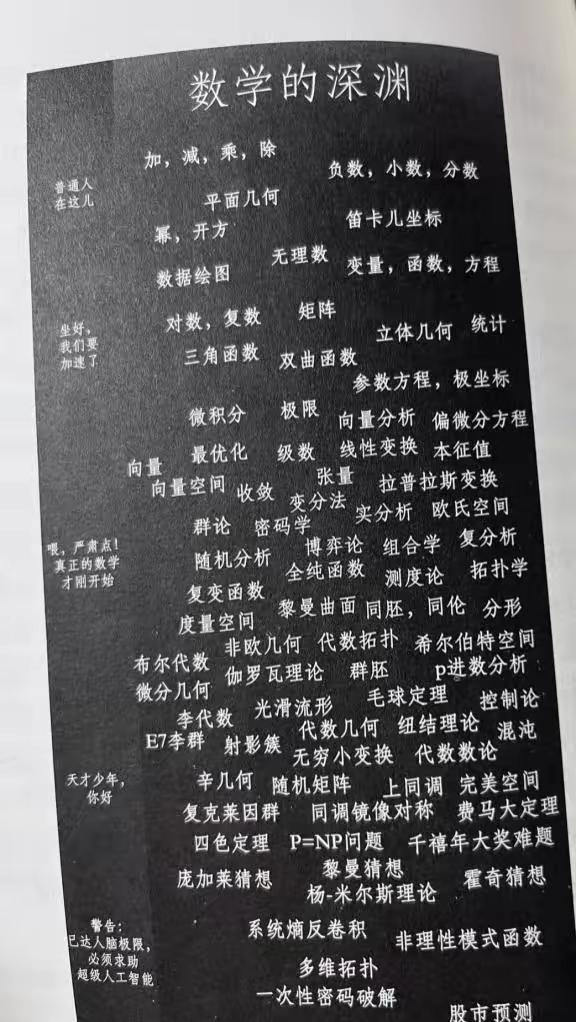 数学的深渊
加，减，乘，除
负数，小数，分数
普通人
在这儿
平面几何
笛卡儿坐标
幂，开方
无理数
变量，函数，方程
数据绘图
坐好，
我们要
加速了
对数，复数
矩阵
立体几何
统计
三角函数
双曲函数
参数方程，极坐标
微积分
极限
向量分析
偏微分方程
向量
最优化
级数
线性变换
本征值
向量空间
收敛
张量
拉普拉斯变换
变分法
群论
密码学
实分析
欧氏空间
喂，严肃点！
真正的数学
才刚开始
随机分析
博弈论
组合学
复分析
复变函数
全纯函数
测度论
拓扑学
度量空间
黎曼曲面
同胚，同伦
分形
非欧几何
代数拓扑
希尔伯特空间
布尔代数
伽罗瓦理论
群胚
p进数分析
微分几何
光滑流形
毛球定理
控制论
李代数
代数几何
纽结理论
混沌
E7李群
射影簇
无穷小变换
代数数论
天才少年，
你好
辛几何
随机矩阵
上同调
完美空间
复克莱因群
同调镜像对称
费马大定理
四色定理
P=NP问题
千禧年大奖难题
庞加莱猜想
黎曼猜想
霍奇猜想
杨-米尔斯理论
警告：
已达人脑极限，
必须求助
超级人工智能
系统熵反卷积
非理性模式函数
多维拓扑
一次性密码破解
股市预测